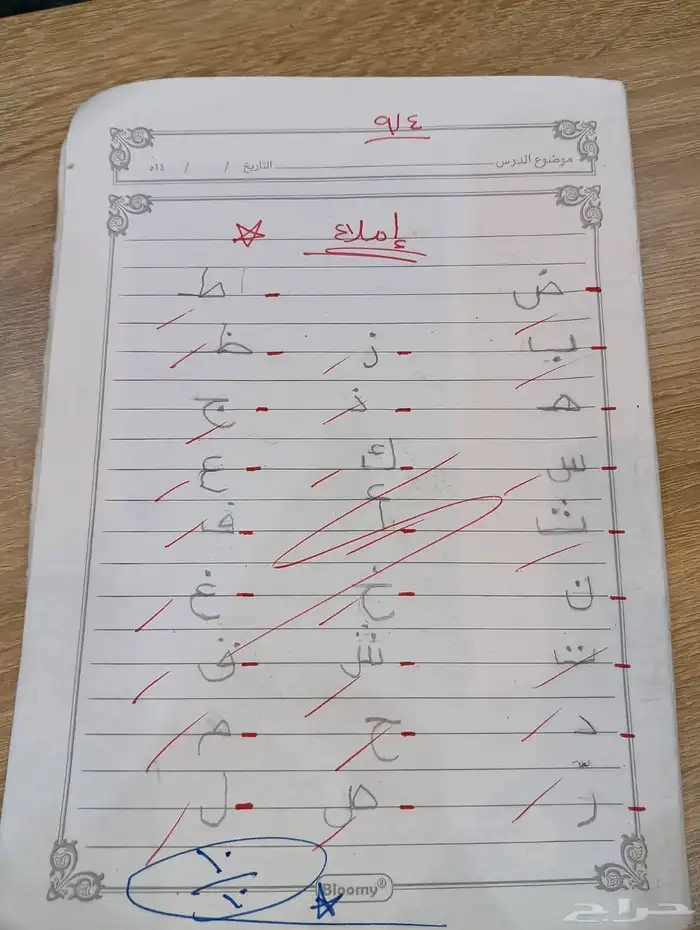 ٩/٤
موضوع الدرس التاريخ / / ١٤هـ
إملاء
ض ط
ب ز ظ
هـ خ ج
س ك ع
ث أ ف
ن خ غ
ت ش ق
د ح م
رّ ص ل
١٠
١٠
Bloomy®
حراج